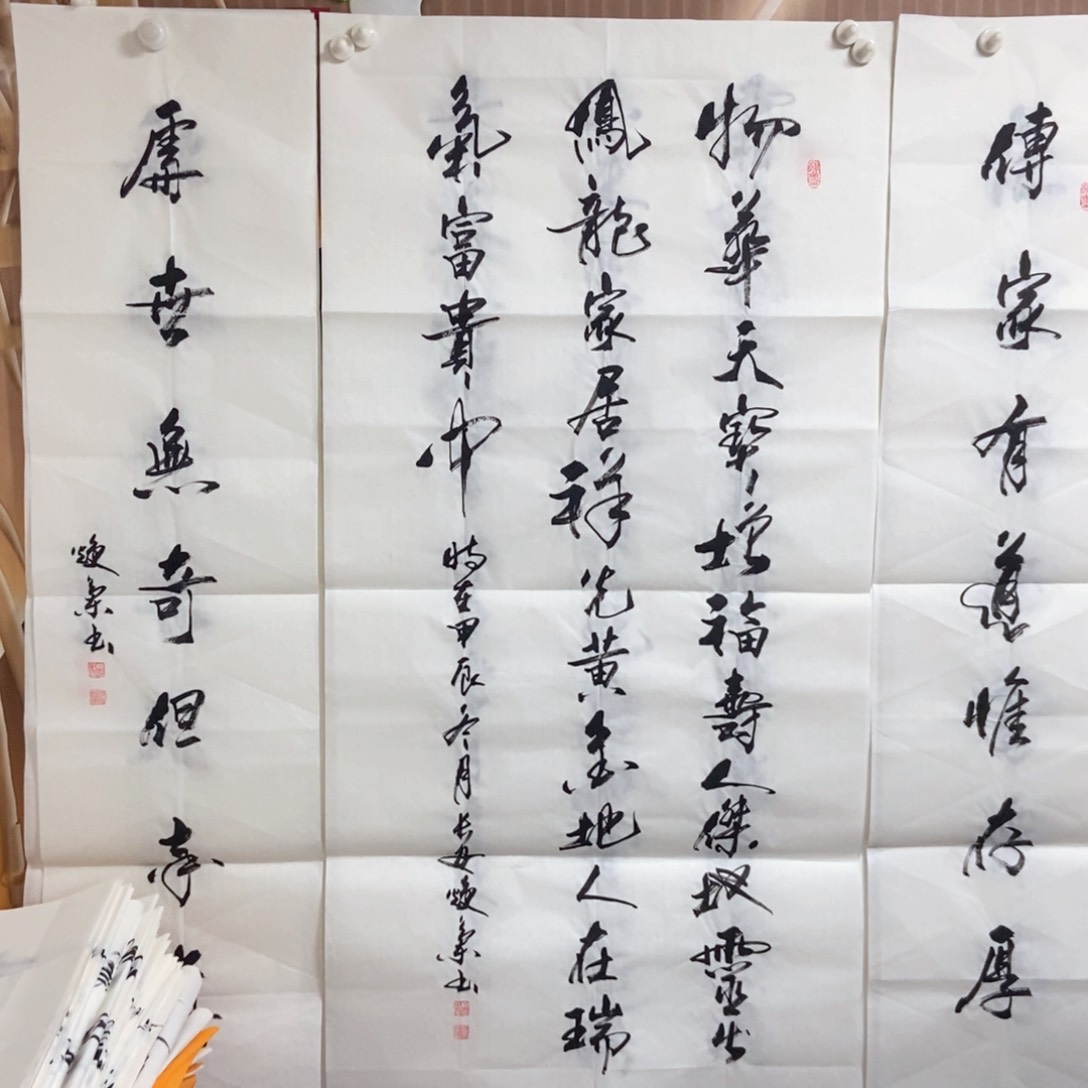 傳家有道惟存厚
物華天寶增福壽人傑地靈出
鳳龍家居祥光黃金地人在瑞
氣富貴中
時在甲辰冬月長安煥書
處世無奇但率
煥書